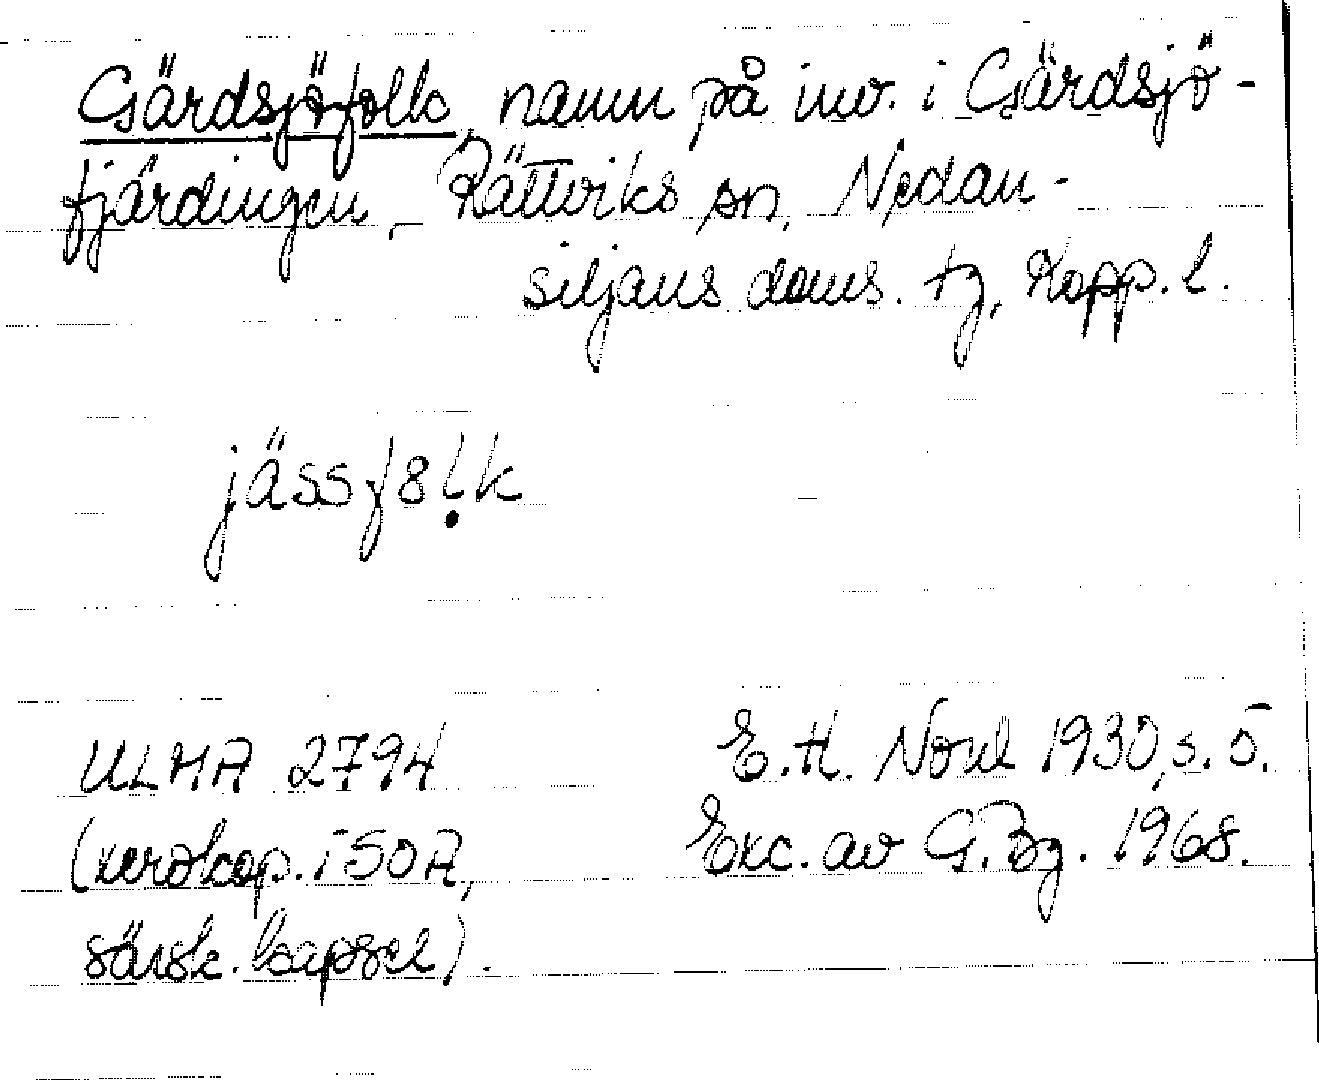 Gärdsjöfolk, namn på inv. i Gärdsjö-
fjärdingen, Rättviks sn, Nedan-
siljans doms. tg, Kopp. l.
jässf8ḷk
ULMA 2794
(xerokop. i SOA,
särsk. kapsel).
E.H. Norl 1930, s. 5.
Exc. av G.Bg. 1968.